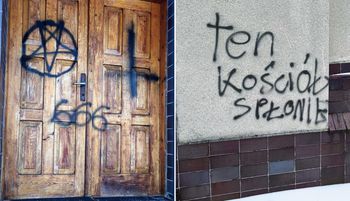 666
ten
kościół
spłonie